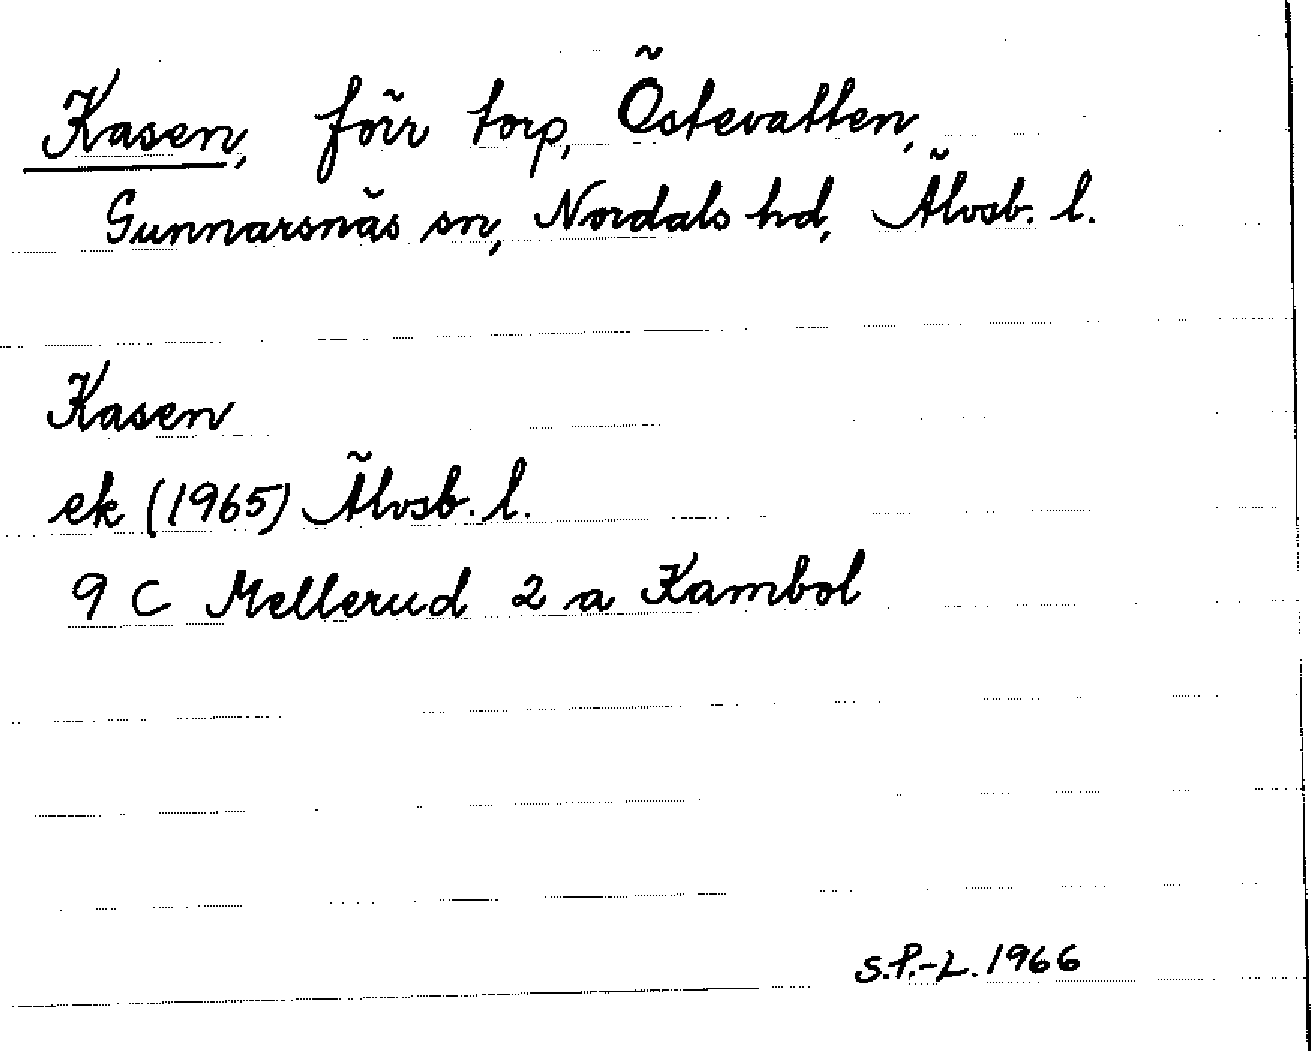 Kasen, förr torp, Östevatten,
Gunnarsnäs sn, Nordals hd, Älvsb. l.
Kasen
ek (1965) Älvsb. l.
9 C Mellerud 2 a Kambol
S.P.-L. 1966